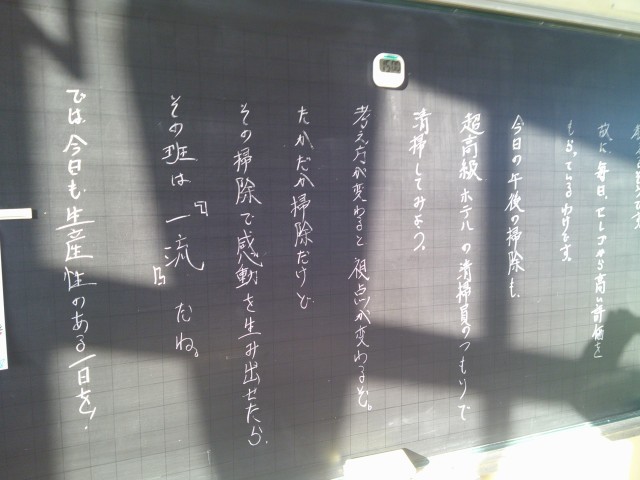 故に毎日、セレブから高い評価を
もらっているわけです。
今日の午後の掃除も、
超高級ホテルの清掃員のつもりで
清掃してみよう。
考え方が変わると視点が変わるぞ。
たかだか掃除だけど
その掃除で感動を生み出せたら、
その班は『一流』だね。
では、今日も生産性のある一日を！